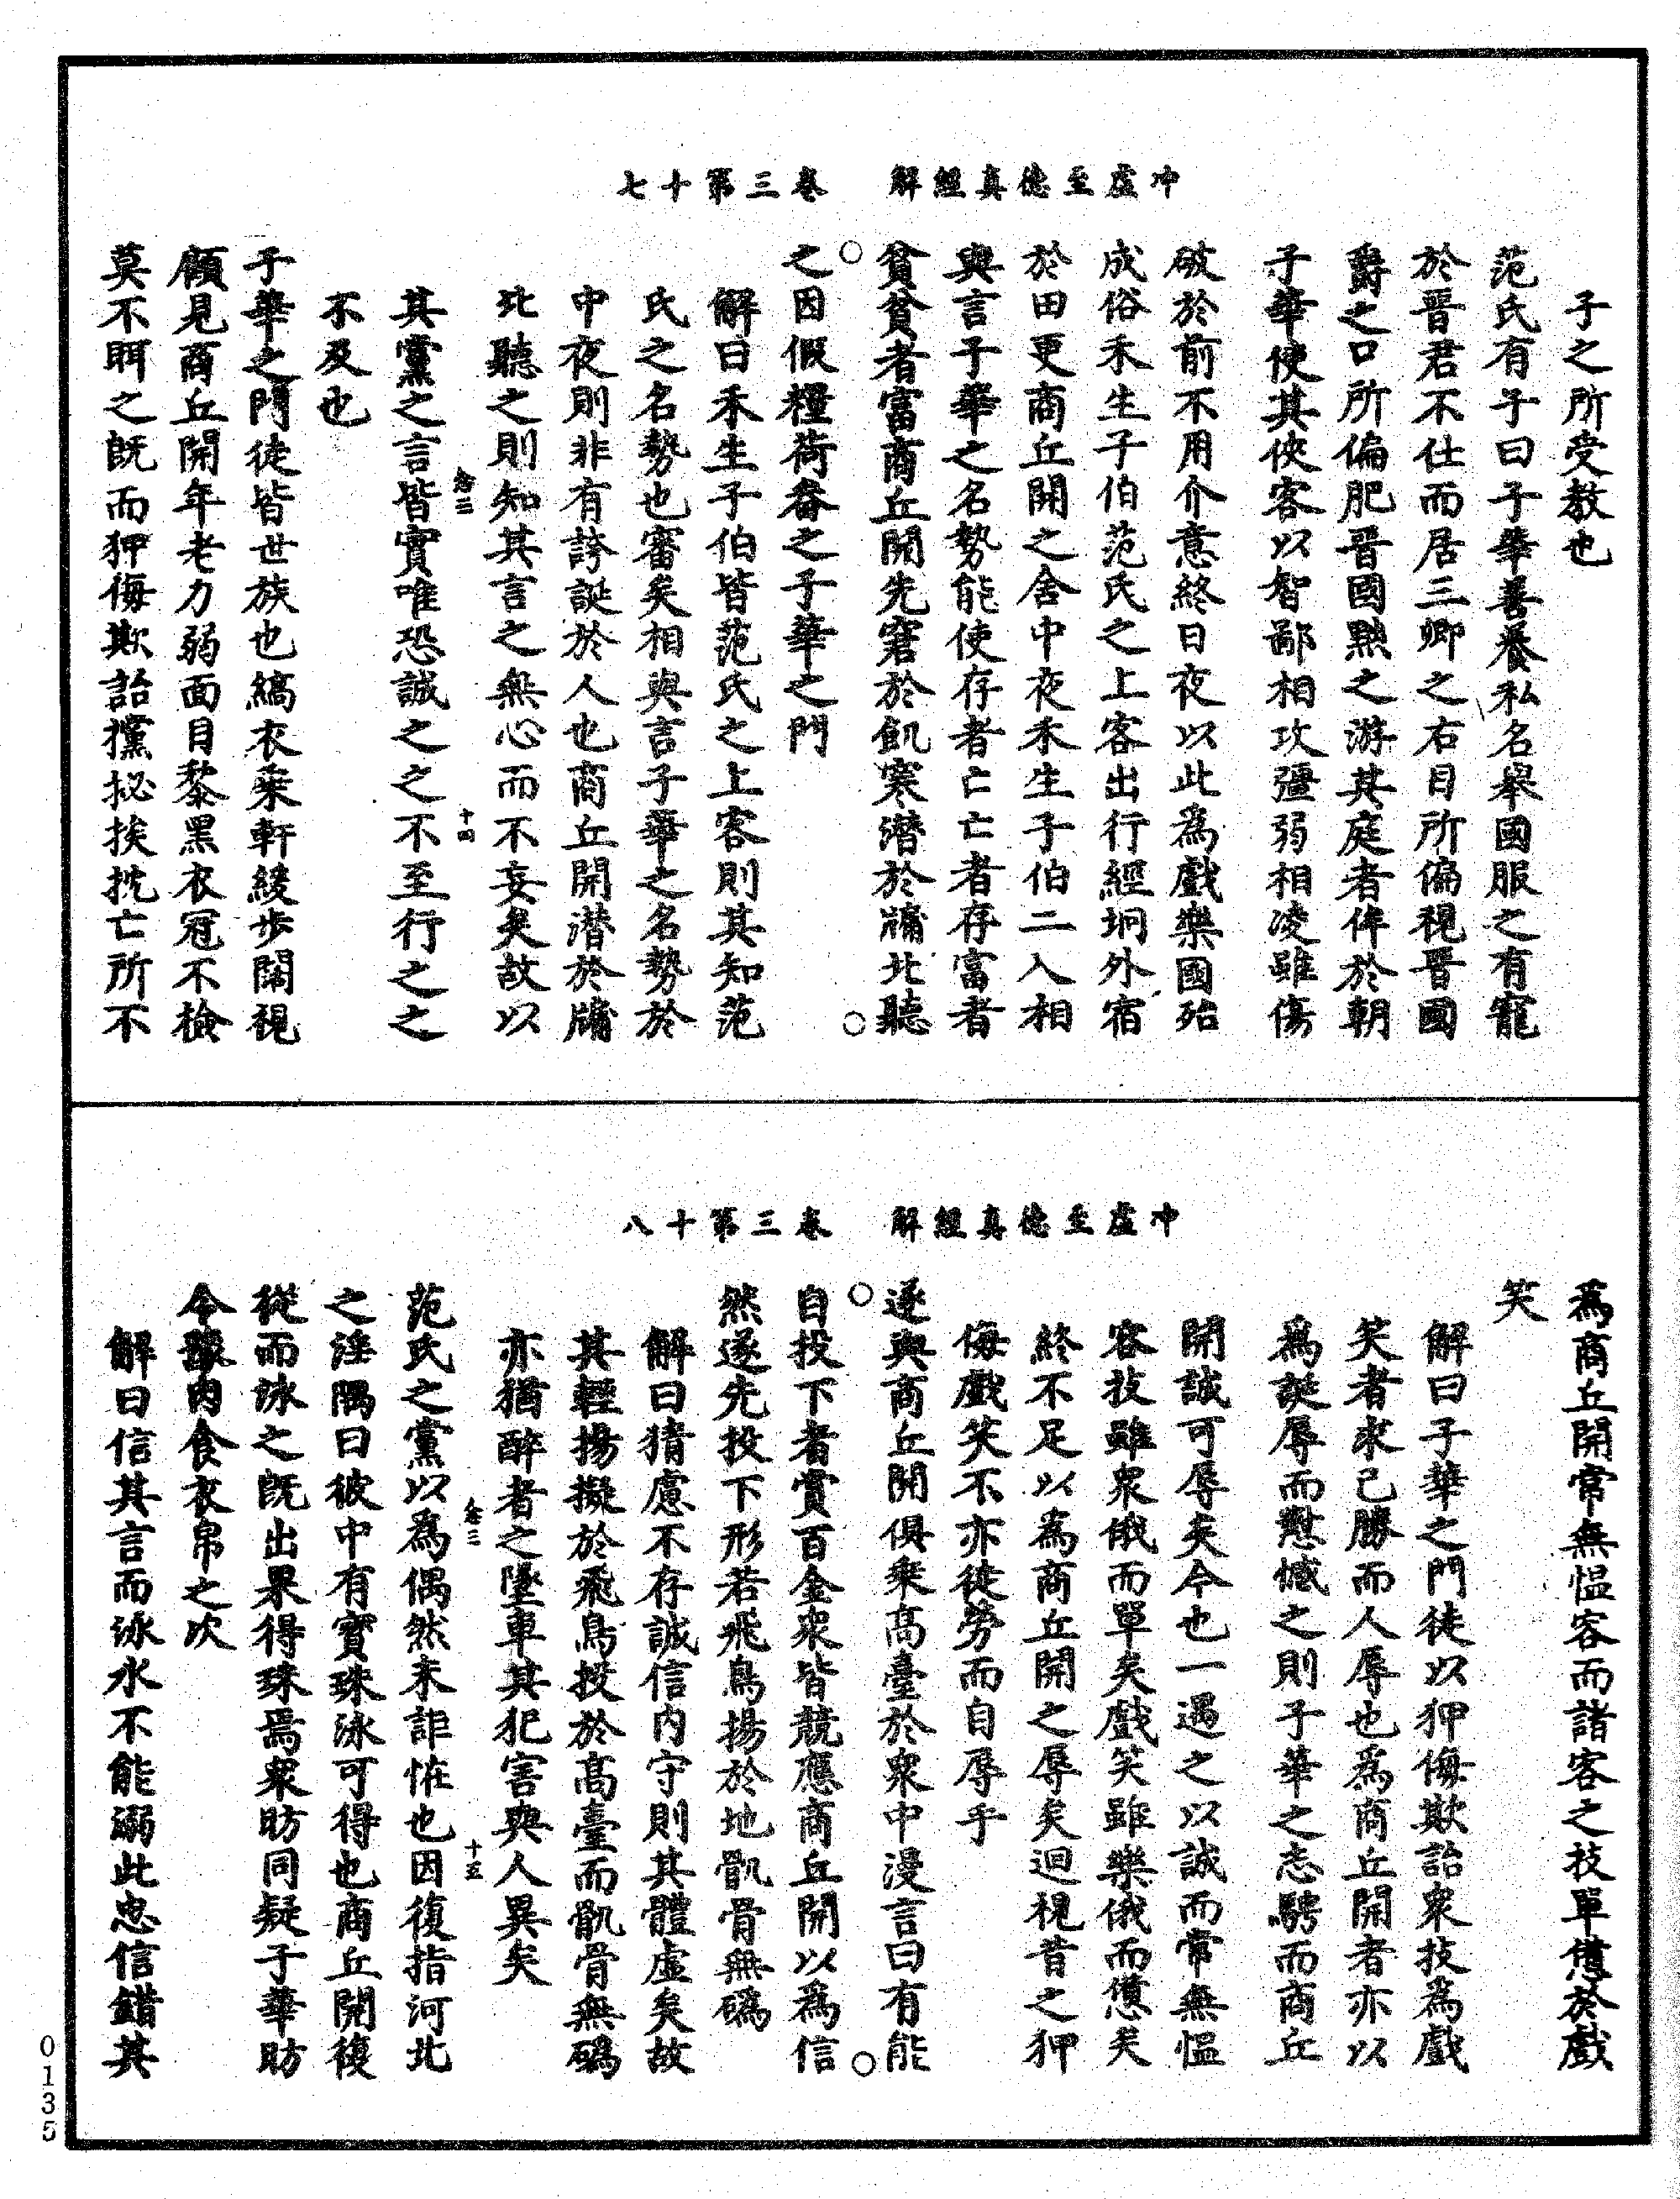 冲虛至德真經解　卷三第十七
子之所受教也
范氏有子曰子華善養私名舉國服之有寵
於晉君不仕而居三卿之右目所偏視晉國
爵之口所偏肥晉國黜之游其庭者侔於朝
子華使其俠客以智鄙相攻彊弱相凌雖傷
破於前不用介意終日夜以此爲戲樂國殆
成俗禾生子伯范氏之上客出行經坰外宿
於田更商丘開之舍中夜禾生子伯二入相
與言子華之名勢能使存者亡亡者存富者
貧貧者富商丘開先窘於飢寒潛於牖北聽
之因假糧荷畚之子華之門
解曰禾生子伯皆范氏之上客則其知范
氏之名勢也審矣相與言子華之名勢於
中夜則非有誇誕於人也商丘開潛於牖
北聽之則知其言之無心而不妄矣故以
其黨之言皆實唯恐誠之之不至行之之
不及也
子華之門徒皆世族也縞衣乘軒緩步闊視
顧見商丘開年老力弱面目黎黑衣冠不檢
莫不眲之旣而狎侮欺詒攩㧙挨抌亡所不
冲虛至德真經解　卷三第十八
爲商丘開常無慍容而諸客之技單憊於戲
笑
解曰子華之門徒以狎侮欺詒衆技爲戲
笑者求己勝而人辱也爲商丘開者亦以
爲誕辱而懟憾之則子華之志騁而商丘
開誠可辱矣今也一遇之以誠而常無慍
容技雖衆俄而單矣戲笑雖樂俄而憊矣
終不足以爲商丘開之辱矣迴視昔之狎
侮戲笑不亦徒勞而自辱乎
遂與商丘開俱乘高臺於衆中漫言曰有能
自投下者賞百金衆皆競應商丘開以爲信
然遂先投下形若飛鳥揚於地骪骨無䃣
解曰猜慮不存誠信内守則其體虛矣故
其輕揚擬於飛鳥投於高臺而骪骨無䃣
亦猶醉者之墜車其犯害與人異矣
范氏之黨以爲偶然未詎恠也因復指河北
之淫隅曰彼中有寶珠泳可得也商丘開復
從而泳之旣出果得珠焉衆昉同疑子華昉
令豫肉食衣帛之次
解曰信其言而泳水不能溺此忠信錯其
0135